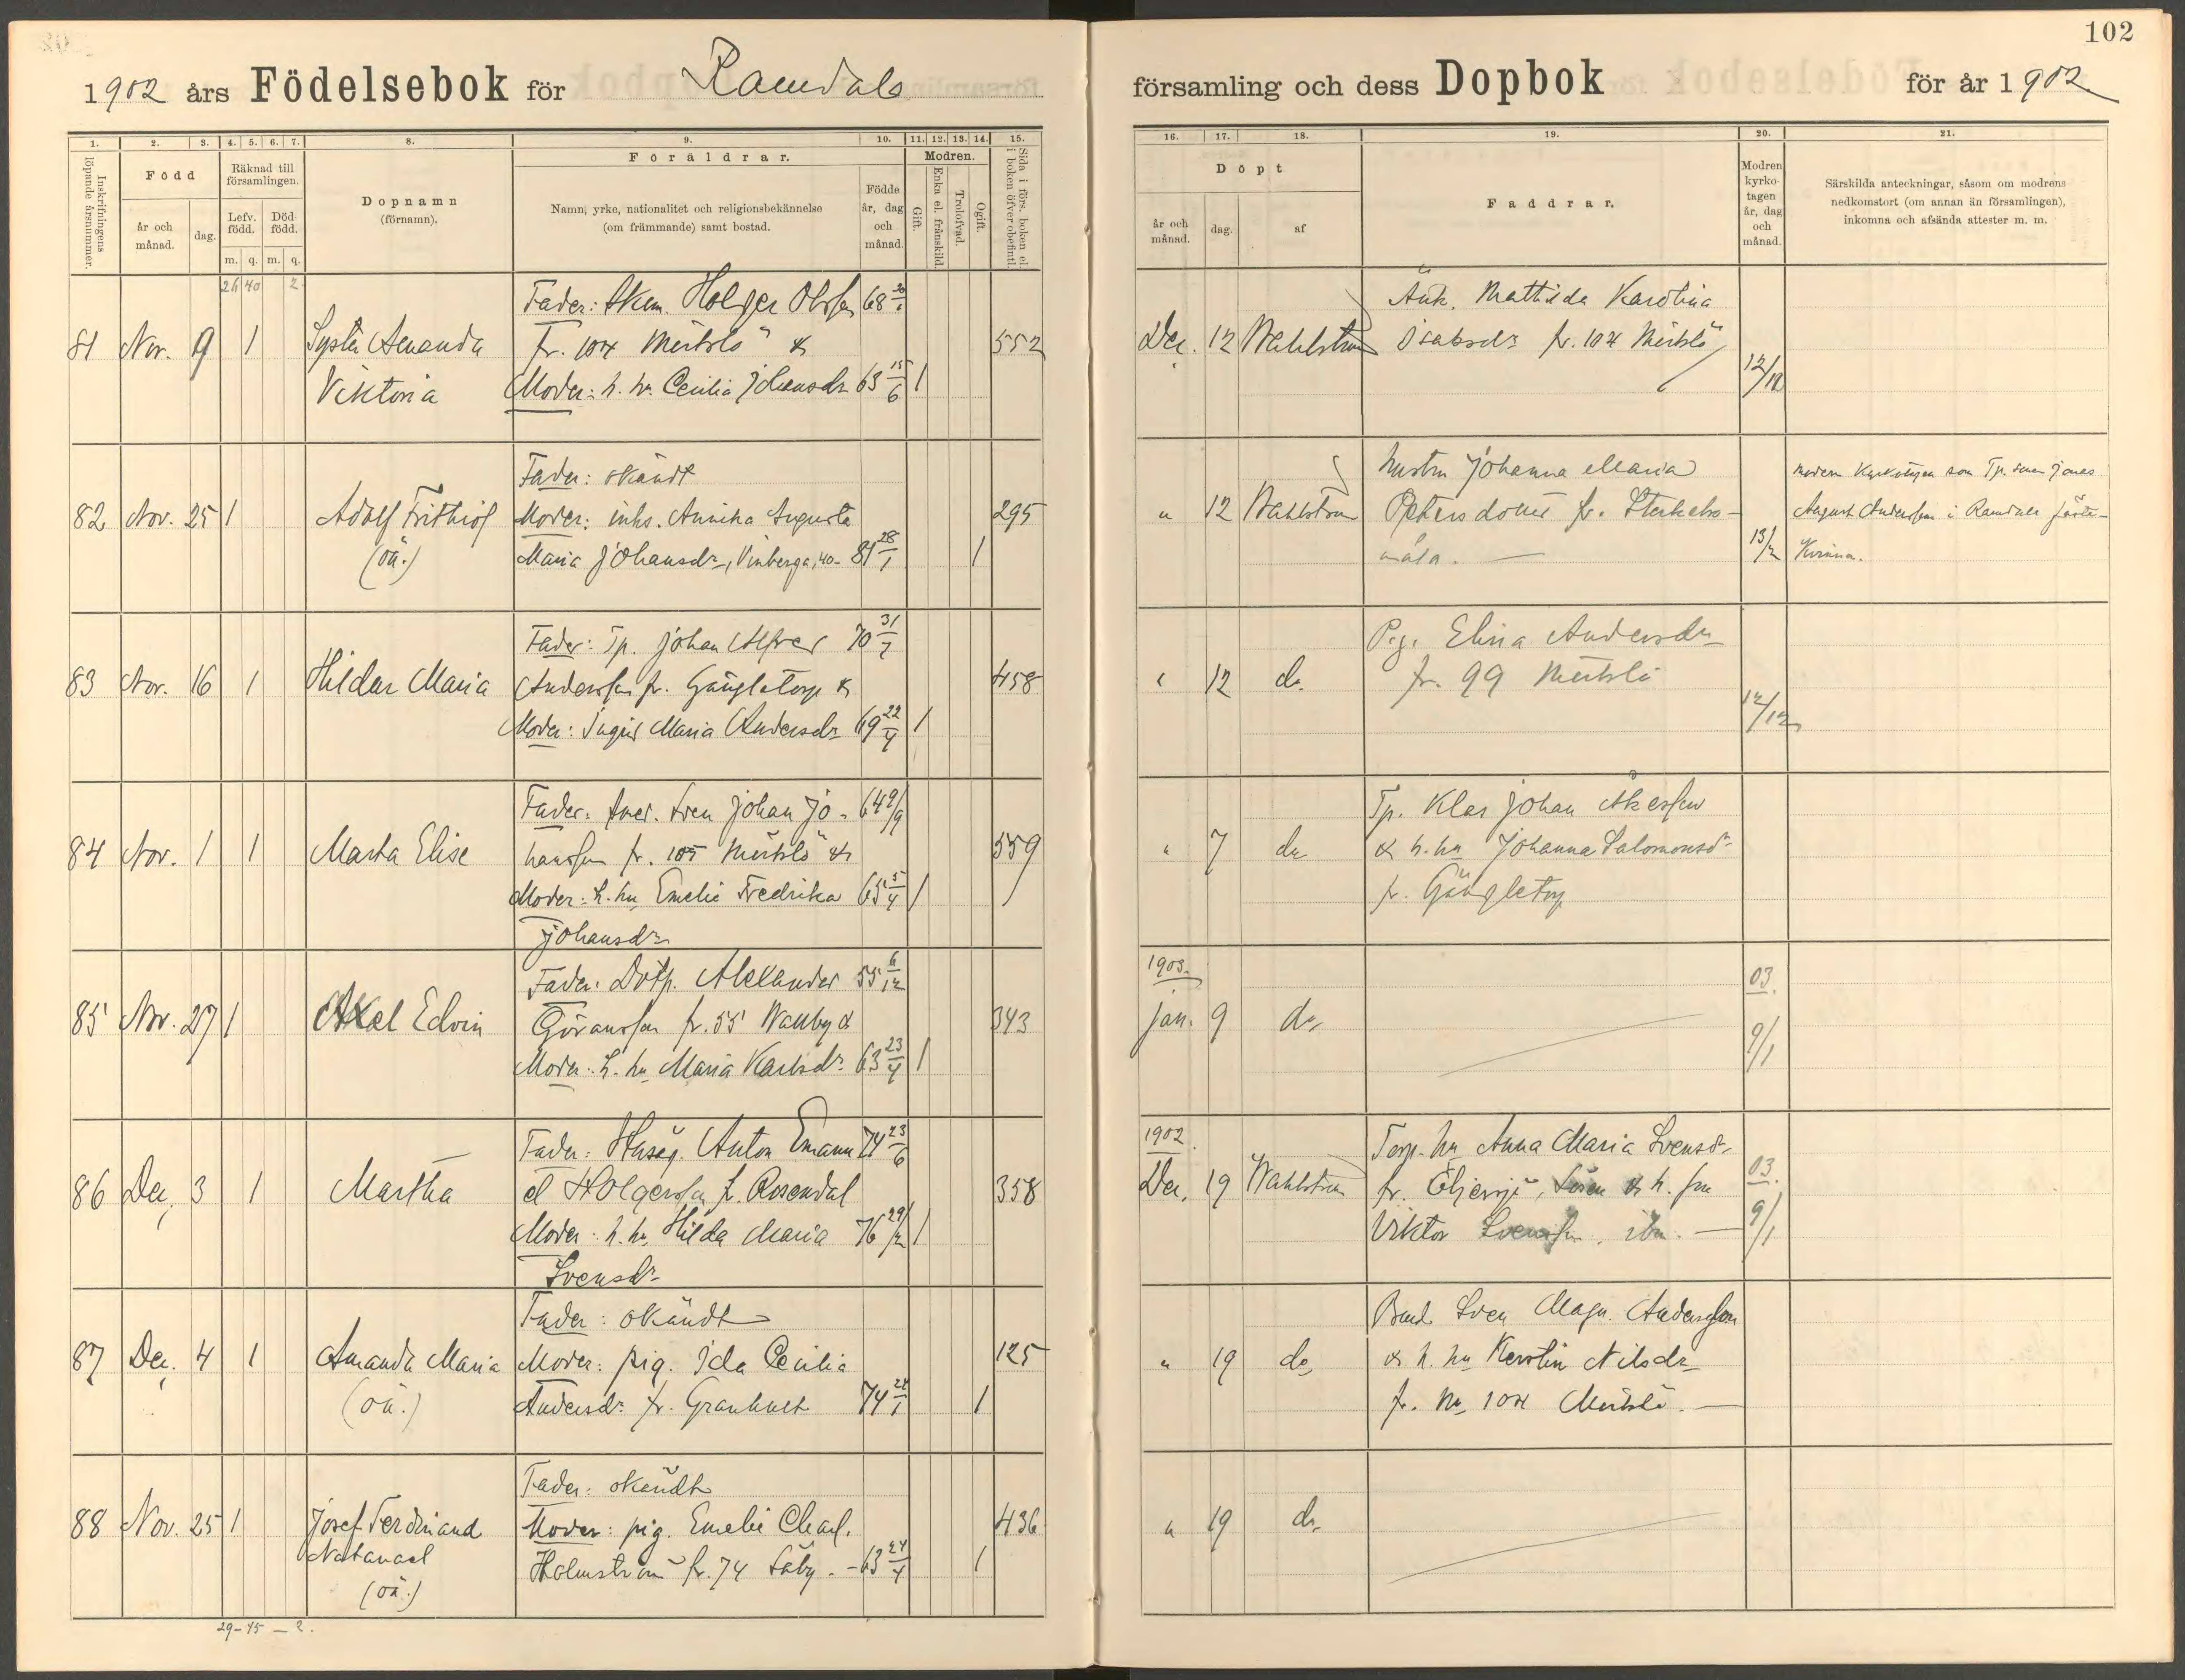 102
1902 års Födelsebok för Ramdala
församling och dess Dopbok för år 1902
1. 2. 3. 4. 5. 6. 7. 8. 9. 10. 11. 12. 13. 14. 15.
16. 17. 18. 19. 20. 21.
Inskrifningens löpande årsnummer.
Född
år och månad.
dag.
Räknad till församlingen.
Lefv. född.
Död född.
m. q. m. q.
Dopnamn
(förnamn).
Föräldrar.
Namn, yrke, nationalitet och religionsbekännelse
(om främmande) samt bostad.
Födde år, dag och månad.
Modren.
Gift.
Enka el. frånskild.
Trolofvad.
Ogift.
Sida i förs. boken el. i boken öfver obefintl.
Döpt
år och månad.
dag.
af
Faddrar.
Modren kyrkotagen år, dag och månad.
Särskilda anteckningar, såsom om modrens
nedkomstort (om annan än församlingen),
inkomna och afsända attester m. m.
26 40 2
81 Nov. 9 1 Amanda
Viktoria
Fader: Holger Olsson 68
fr. 104 Mörtslö &
Moder: h. hu. Cecilia Johansdr 63 15/6 1
552
Dec. 12 Wahlström
Mathilda Karolina
fr. 104 Mörtslö
12/12
82 Nov. 25 1 Adolf Frithiof
(oä.)
Fader: okändt
Moder: inhs. Annika Augusta
Maria Johansdr, Vinberga, 40- 81 28/1 1
295
" 12 Wahlström
hustru Johanna Maria
Petersdotter fr.
måla. —
13/2
modern kyrkotagen som Tp. sonen Jonas
August Anderssons i Ramdala fäste-
kvinna.
83 Nov. 16 1 Hildur Maria
Fader: Tp. Johan Alfred 70 31/7
Andersson fr. Gängletorp &
Moder: Ingrid Maria Andersdr 69 22/4 1
458
" 12 do.
Pig. Elina Andersdr
fr. 99 Mörtslö
12/12
84 Nov. 1 1 Marta Elise
Fader: Sven Johan Jo- 64 9/9
hansson fr. 105 Mörtslö &
Moder: h. hu Emelie Fredrika 65 5/4 1
Johansdr
559
" 7 do
Tp. Klas Johan Åkesson
& h. hu Johanna Salomonsdr
fr. Gängletorp
85 Nov. 27 1 Axel Edvin
Fader: Alexander 55 6/12
Göransson fr. 55 Wallby &
Moder: h. hu Maria Karlsdr 63 23/4 1
343
1903.
Jan. 9 do
03.
9/1
86 Dec. 3 1 Martha
Fader: Husäg. Anton Emanu- 74 23/6
el Holgersson fr. Rosendal
Moder: h. hu. Hilda Maria 76 29/12 1
Svensdr
358
1902.
Dec. 19 Wahlström
Torp. hu Anna Maria Svensdr
fr.
Viktor Svensson, ibm. —
03.
9/1
87 Dec. 4 1 Amanda Maria
(oä.)
Fader: okändt
Moder: pig. Ida Cecilia
Andersdr fr. Granhult 74 1
125
" 19 do
Sven Magn. Andersson
& h. hu Kerstin Nilsdr
fr. No 104 Mörtslö. —
88 Nov. 25 1 Josef Ferdinand
Natanael
(oä.)
Fader: okändt
Moder: pig. Emelie Charl.
Holmström fr. 74 Säby. - 63 24/4 1
436
" 19 do
29 - 45 - 2.